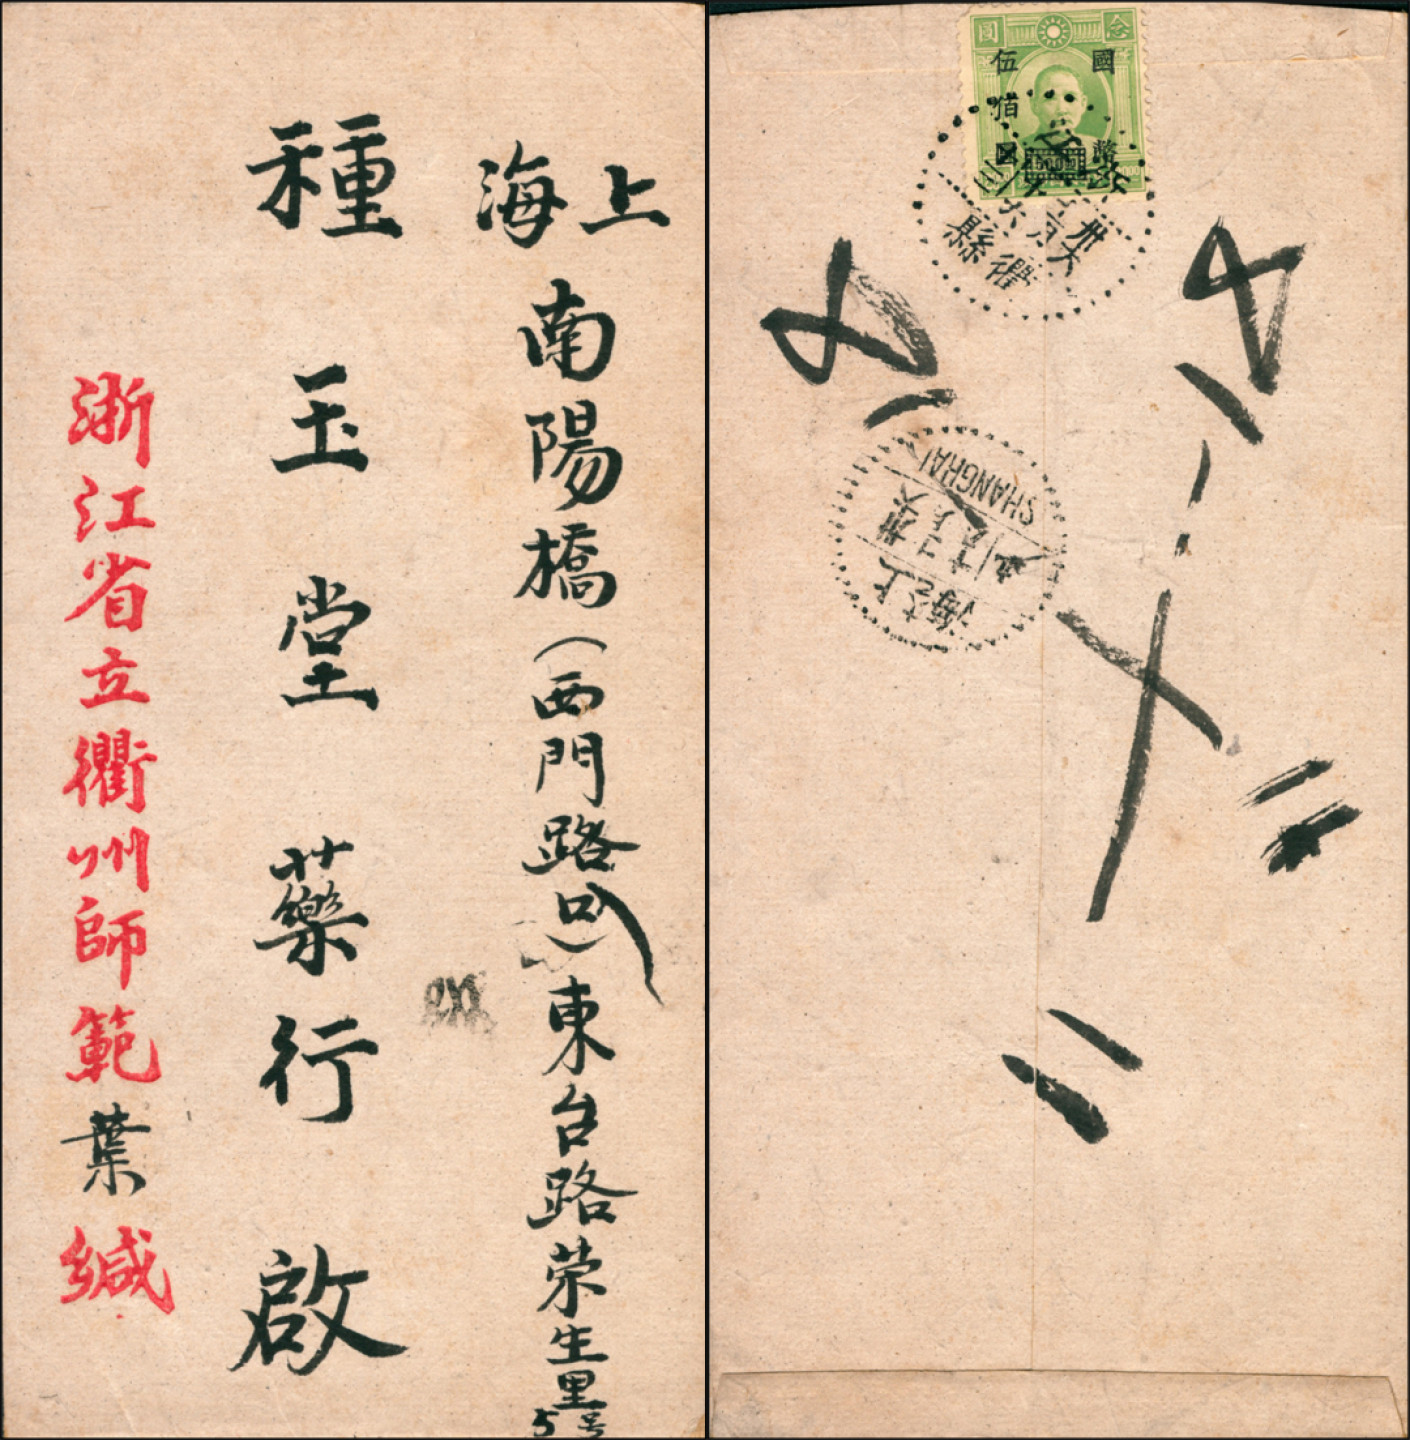 上海
南陽橋（西門路口）東台路荣生里5号
種玉堂藥行啟
浙江省立衢州師範葉緘
圓 念
國幣
伍佰圓
500
衢縣
上海
SHANGHAI